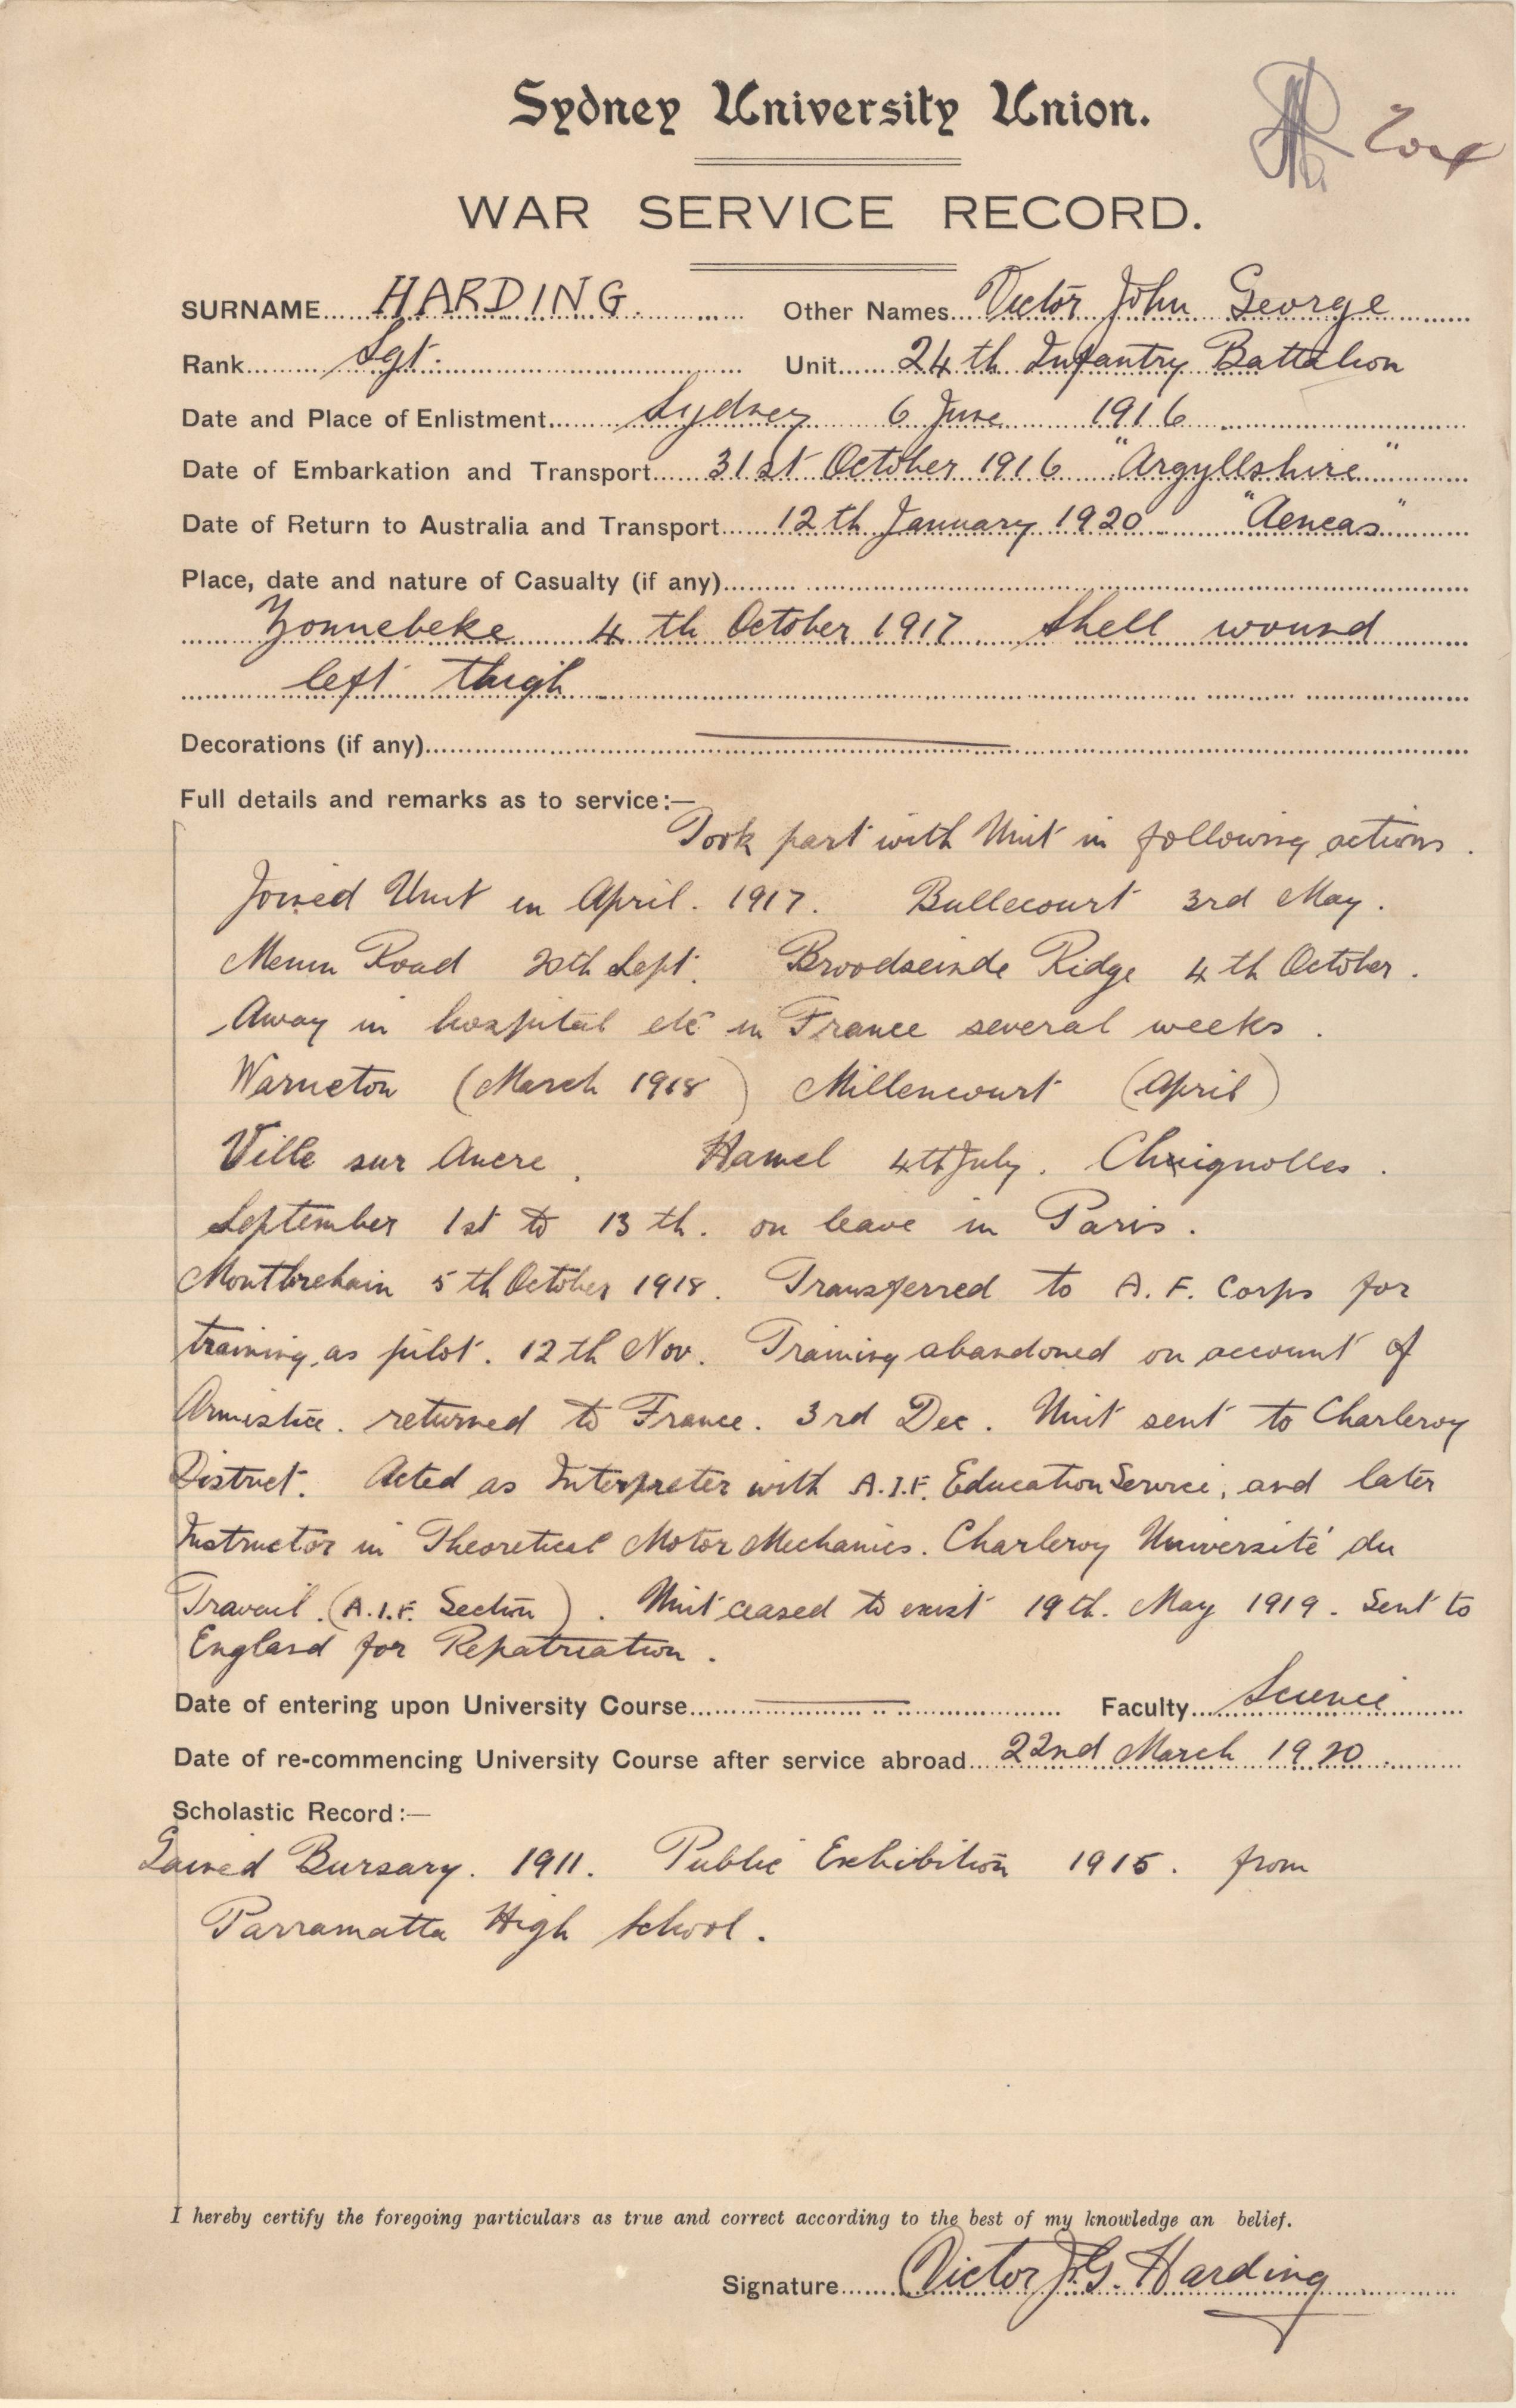 Sydney University Union.
WAR SERVICE RECORD.
SURNAME HARDING. Other Names Victor John George
Rank Sgt. Unit 24th Infantry Battalion
Date and Place of Enlistment Sydney 6 June 1916
Date of Embarkation and Transport 31st October 1916 "Argyllshire"
Date of Return to Australia and Transport 12th January 1920 "Aeneas"
Place, date and nature of Casualty (if any)
Zonnebeke 4th October 1917 Shell wound
left thigh
Decorations (if any)
Full details and remarks as to service:—
Took part with Unit in following actions.
Joined Unit in April. 1917. Bullecourt 3rd May.
Menin Road 20th Sept. Broodseinde Ridge 4th October.
Away in hospital etc in France several weeks.
Warneton (March 1918) Millencourt (April)
Ville sur Ancre. Hamel 4th July. Chuignolles.
September 1st to 13th. on leave in Paris.
Montbrehain 5th October 1918. Transferred to A. F. Corps for
training as pilot. 12th Nov. Training abandoned on account of
Armistice. returned to France. 3rd Dec. Unit sent to Charleroy
District. Acted as Interpreter with A.I.F. Education Service, and later
Instructor in Theoretical Motor Mechanics. Charleroy Université du
Travail. (A.I.F. Section). Unit ceased to exist 19th. May 1919. Sent to
England for Repatriation.
Date of entering upon University Course Faculty Science
Date of re-commencing University Course after service abroad 22nd March 1920
Scholastic Record:—
Gained Bursary. 1911. Public Exhibition 1915. from
Parramatta High School.
I hereby certify the foregoing particulars as true and correct according to the best of my knowledge an belief.
Signature Victor J.G. Harding